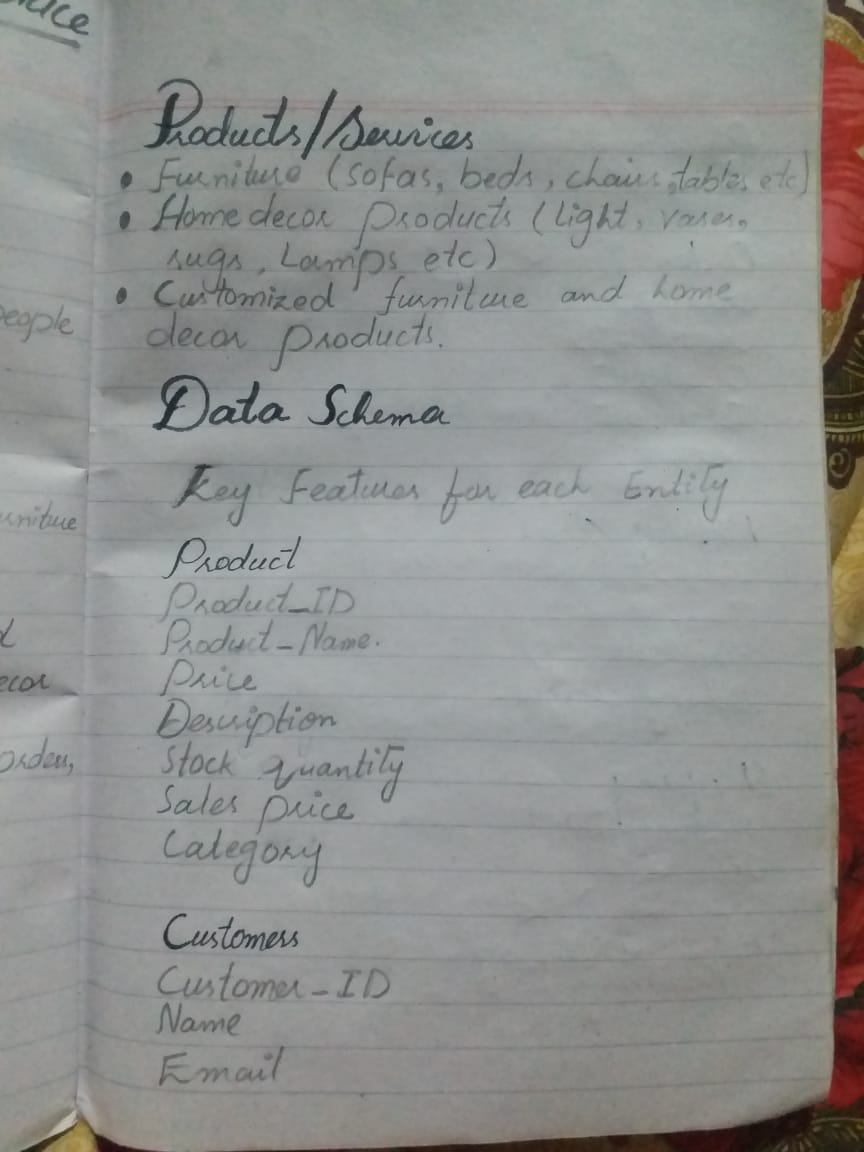 Products/Services
• Furniture (sofas, beds, chairs, tables etc)
• Home decor products (light, vases,
rugs, Lamps etc)
• Customized furniture and home
decor products.
Data Schema
Key Features for each Entity
Product
Product_ID
Product-Name.
Price
Description
Stock quantity
Sales price
Category
Customers
Customer-ID
Name
Email
people
ecor
orders,